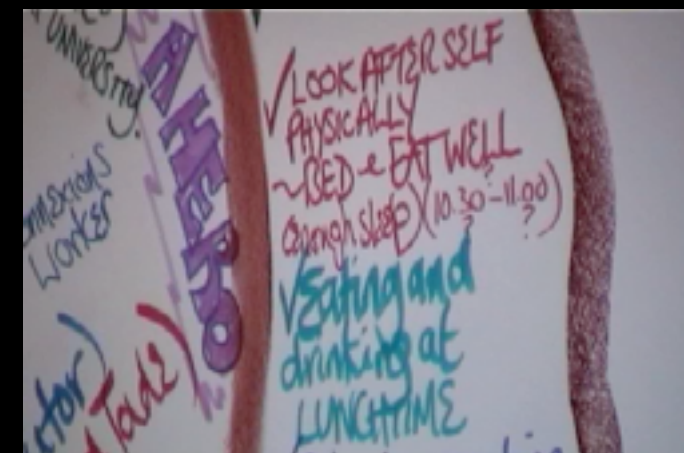 UNIVERSITY!
A HERO
Worker
Jade)
✓ LOOK AFTER SELF
PHYSICALLY
~BED & EAT WELL
(enough sleep) (10.30-11.00)
? ?
✓ Eating and
drinking at
LUNCHTIME